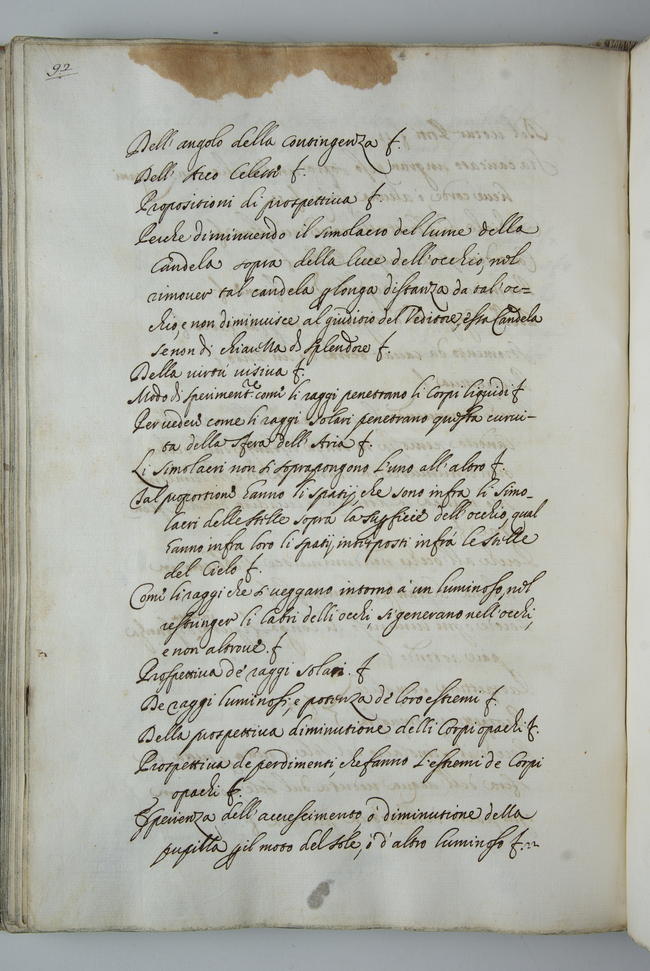 92
Dell' angolo della Contingenza f.
Dell' Arco Celeste f.
Propositioni di prospettiva f.
Perche diminuendo il simolacro del lume della
Candela sopra della luce dell'occhio, nel
rimover tal candela p longa distanza da tal'oc=
chio, e non diminuisce al giudicio del Veditore, essa Candela
se non di chiarezza di splendore f.
Della virtù visiva f.
Modo di speriment.e come li raggi penetrano li Corpi liquidi f
Per vedere come li raggi solari penetrano questa curui-
tà della sfera dell' Aria f.
Li simolacri non si soprapongono l'uno all' altro f.
Tal proportione hanno li spatij, che sono infra li simo-
lacri delle stelle sopra la supficie dell'occhio, qual
hanno infra loro li spatij interposti infrà le stelle
del Cielo f.
Come li raggi che si veggano intorno à un luminoso, nel
restringer li labri delli occhi, si generano nell'occhi,
e non altrove. f
Prospettiva de' raggi solari. f
De raggi luminosi, e potenza de loro estremi f.
Della prospettiva diminutione delli Corpi opachi f.
Prospettiva de perdimenti, che fanno l'estremi de Corpi
opachi f.
Esperienza dell' accrescimento, ò diminutione della
pupilla p il moto del sole, ò d'altro luminoso f.